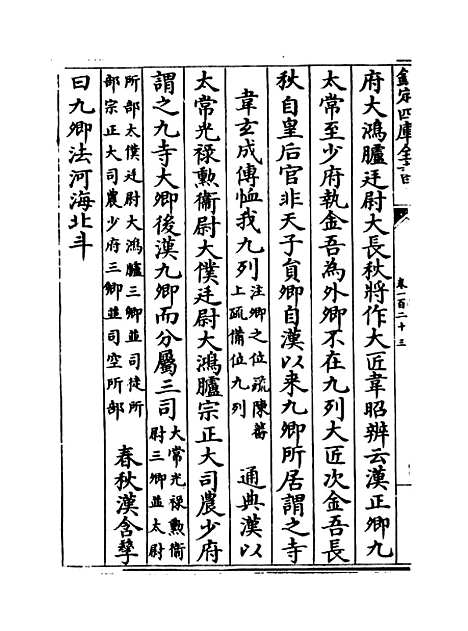 欽定四庫全書
卷一百二十三
府大鴻臚廷尉大長秋將作大匠韋昭辨云漢正卿九
太常至少府執金吾為外卿不在九列大匠次金吾長
秋自皇后官非天子員卿自漢以来九卿所居謂之寺
韋玄成傳恤我九列注卿之位疏陳蕃上疏備位九列 通典漢以
太常光祿勲衞尉太僕廷尉大鴻臚宗正大司農少府
謂之九寺大卿後漢九卿而分屬三司太常光祿勲衞尉三卿並太尉
所部太僕廷尉大鴻臚三卿並司徒所部宗正大司農少府三卿並司空所部 春秋漢含孳
曰九卿法河海北斗